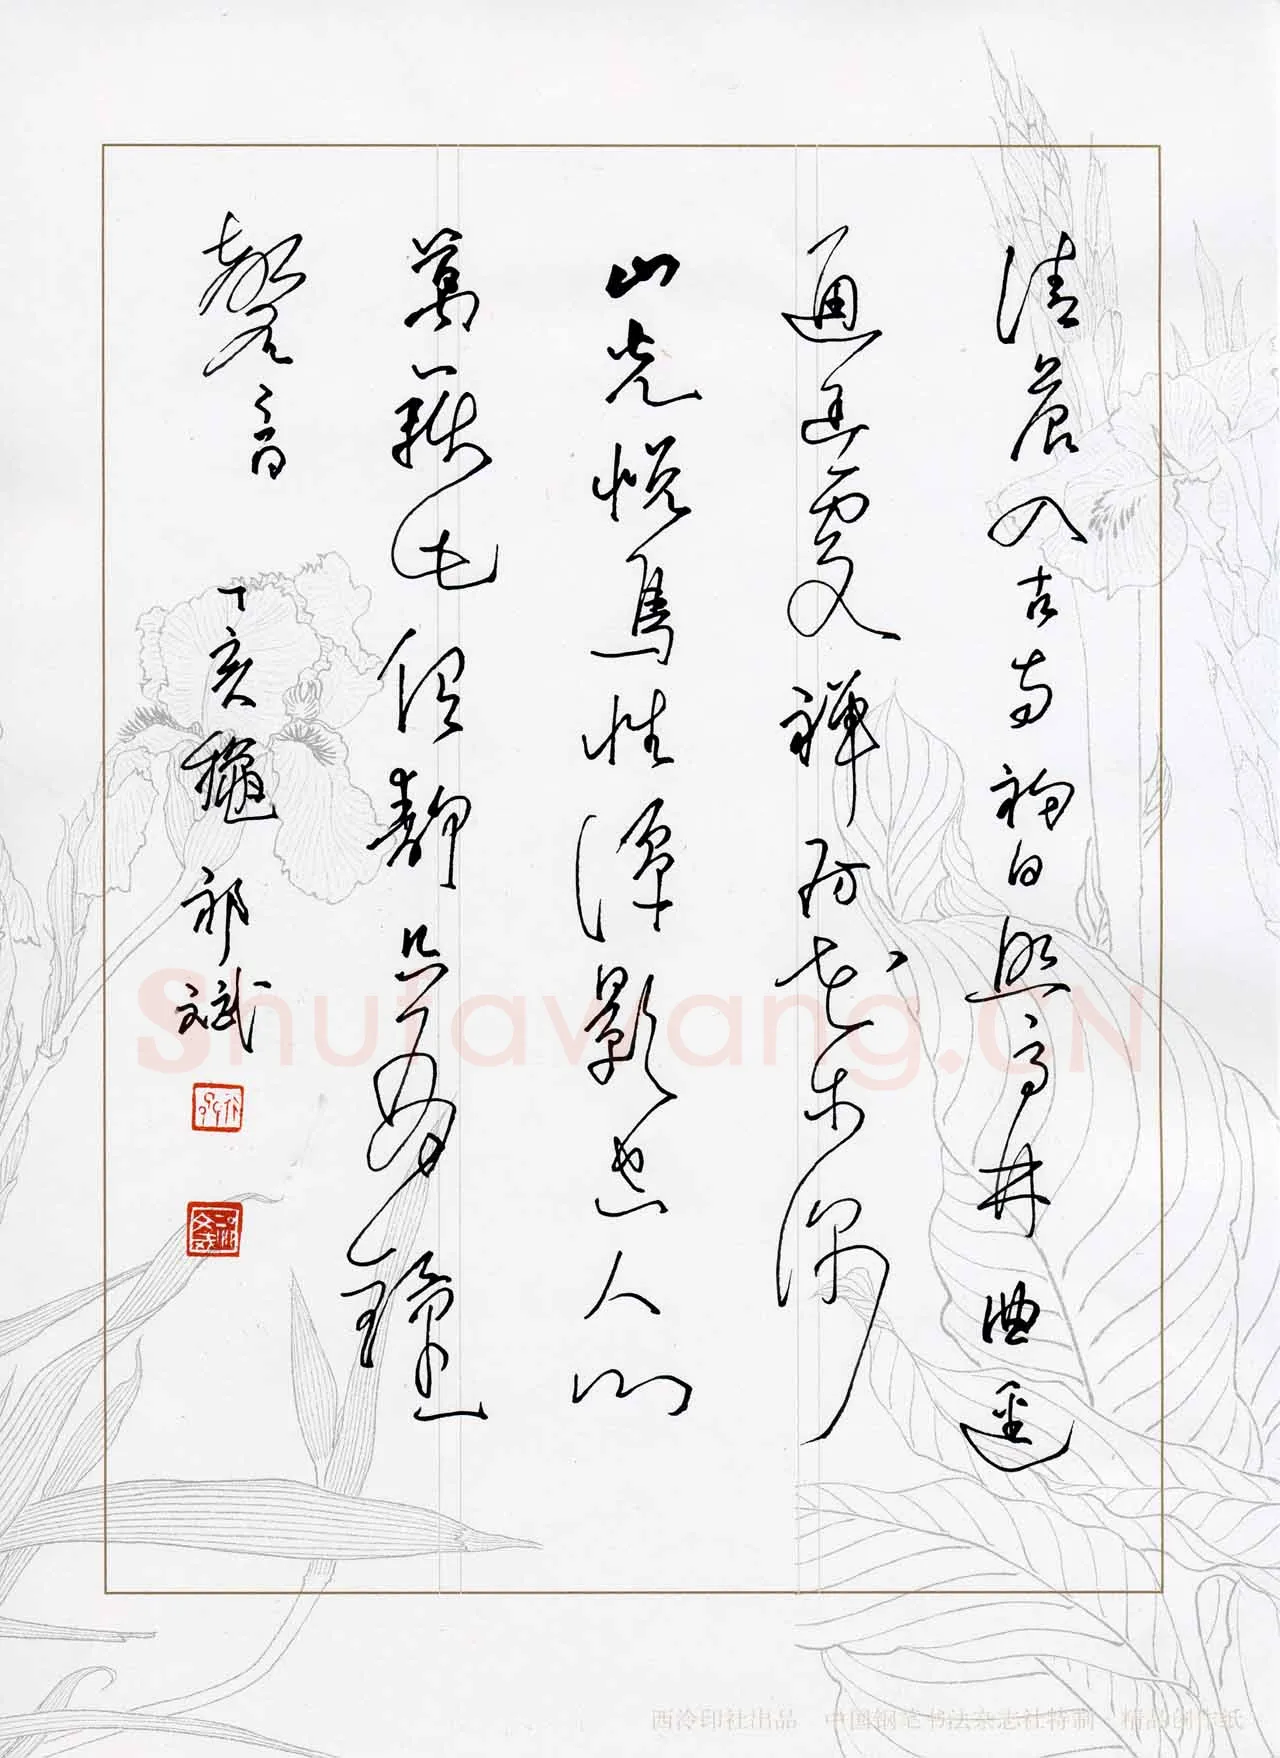 清晨入古寺初日照高林曲逕
通幽處禪房花木深
山光悦鳥性潭影空人心
萬籟此俱静只餘鐘
磬音 丁亥龝 祁斌
Shufawang.CN
西泠印社出品 中国钢笔书法杂志社特制·精品创作纸